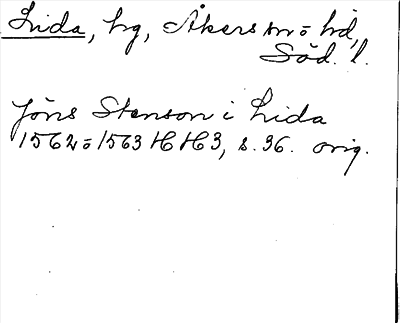 Lida, hg, Åkers sn = hd,
Söd. l.
Jöns Stenson i Lida
1562 = 1563 HH3, s. 36. orig.